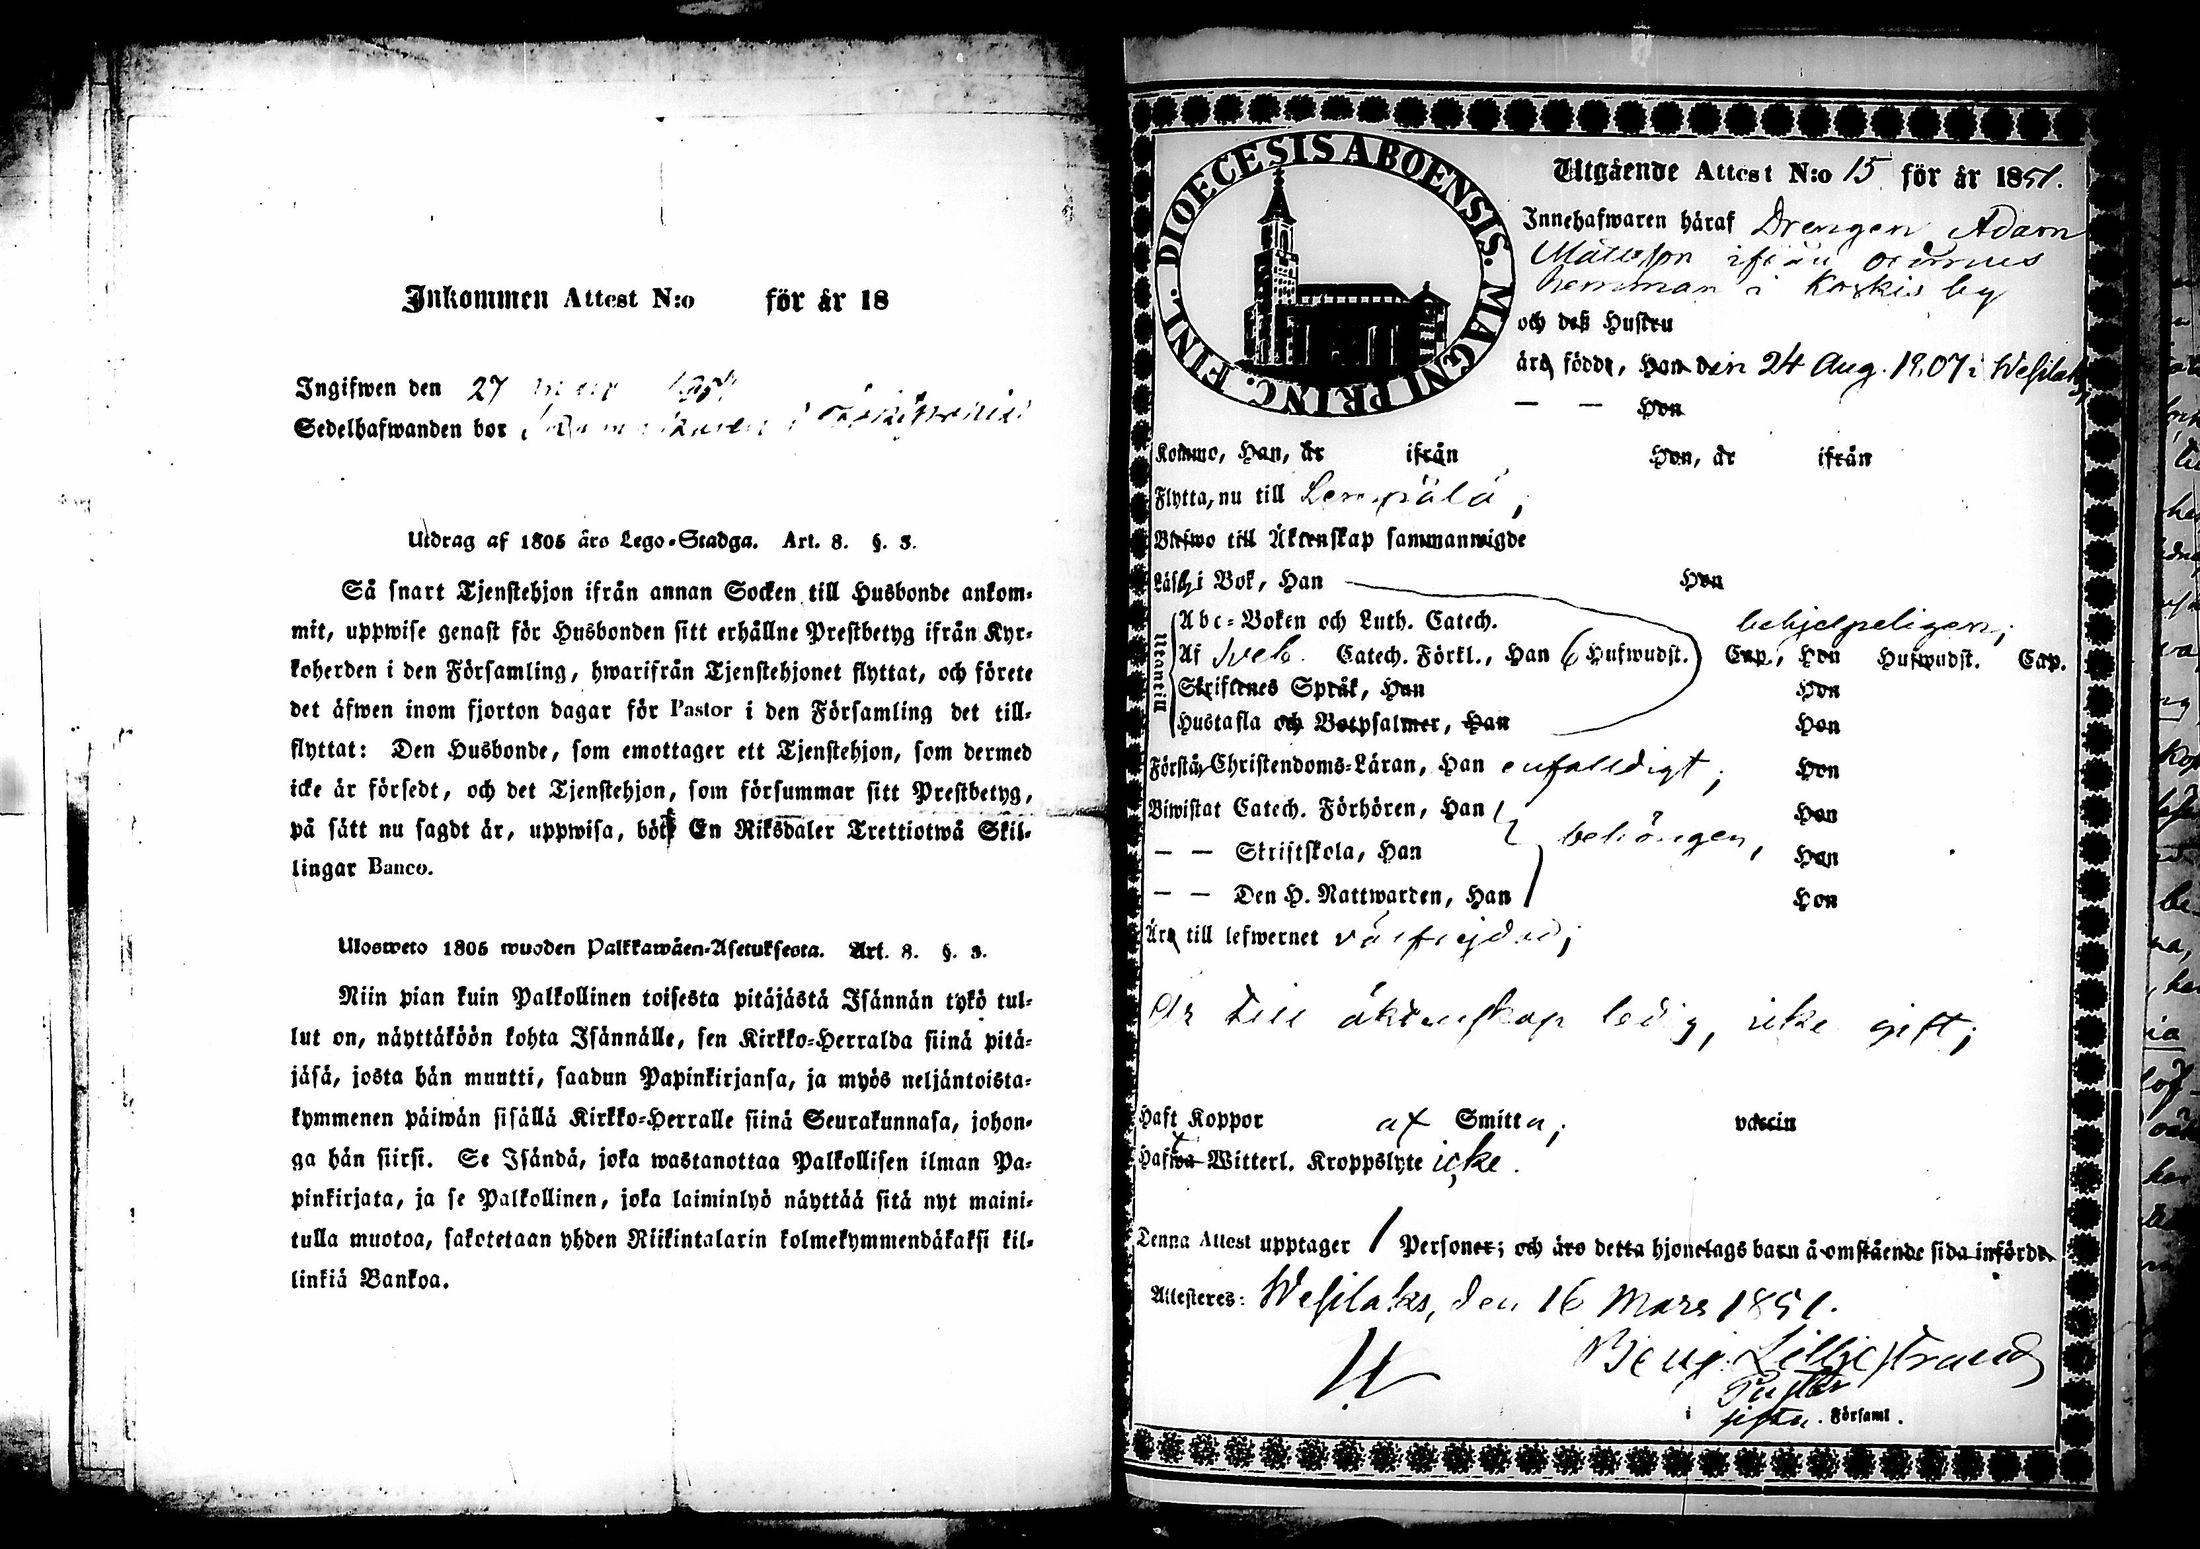 Inkommen Attest N:o för år 18
Ingifwen den 27 mars
Sedelhafwanden bor i
Utdrag af 1805 års Lego-Stadga. Art. 8. §. 3.
Så snart Tjenstehjon ifrån annan Socken till Husbonde ankom-
mit, uppwise genast för Husbonden sitt erhållne Prestbetyg ifrån Kyr-
koherden i den Församling, hwarifrån Tjenstehjonet flyttat, och förete
det äfwen inom fjorton dagar för Pastor i den Församling det till-
flyttat: Den Husbonde, som emottager ett Tjenstehjon, som dermed
icke är försedt, och det Tjenstehjon, som försummar sitt Prestbetyg,
på sätt nu sagdt är, uppwisa, böte En Riksdaler Trettiotwå Skil-
lingar Banco.
Ulosweto 1805 wuoden Palkkawäen-Asetuksesta. Art. 8. §. 3.
Niin pian kuin Palkollinen toisesta pitäjästä Isännän tykö tul-
lut on, näyttäköön kohta Isännälle, sen Kirkko-Herralda siinä pitä-
jäsä, josta hän muutti, saadun Papinkirjansa, ja myös neljäntoista-
kymmenen päiwän sisällä Kirkko-Herralle siinä Seurakunnasa, johon-
ga hän siirsi. Se Isändä, joka wastanottaa Palkollisen ilman Pa-
pinkirjata, ja se Palkollinen, joka laiminlyö näyttää sitä nyt maini-
tulla muotoa, sakotetaan yhden Riikintalarin kolmekymmendäkaksi kil-
linkiä Bankoa.
DIOECESIS ABOENSIS. MAGNI PRINC. FINL.
Utgående Attest N:o 15 för år 1851.
Innehafwaren häraf Drengen Adam
Mattsson ifrån
hemman i Koskis by
och deß Hustru
äro födde, Han den 24 Aug. 1807 i Wesilaks
— — Hon
Kommo, Han, år ifrån Hon, år ifrån
Flytta, nu till Lempälä,
Blefwo till Äktenskap sammanwigde
Läsa i Bok, Han Hon
Utantill
Abc-Boken och Luth. Catech. behjelpeligen;
Af Sveb. Catech. Förkl., Han 6 Hufwudst. Cap., Hon Hufwudst. Cap.
Skriftenes Språk, Han Hon
Hustafla och Botpsalmer, Han Hon
Förstå Christendoms-Läran, Han enfalldigt; Hon
Biwistat Catech. Förhören, Han behörigen, Hon
— — Skriftskola, Han Hon
— — Den H. Nattwarden, Han Hon
Äro till lefwernet välfrejdad;
Är till äktenskap ledig, icke gift;
Haft Koppor af Smitta; vaccin
Hafwa Witterl. Kroppslyte icke.
Denna Attest upptager 1 Personer; och äro detta hjonelags barn å omstående sida införde.
Attesteres: Wesilaks, den 16 Mars 1851.
Benj. Lilljestrand
Pastor
i Församl.